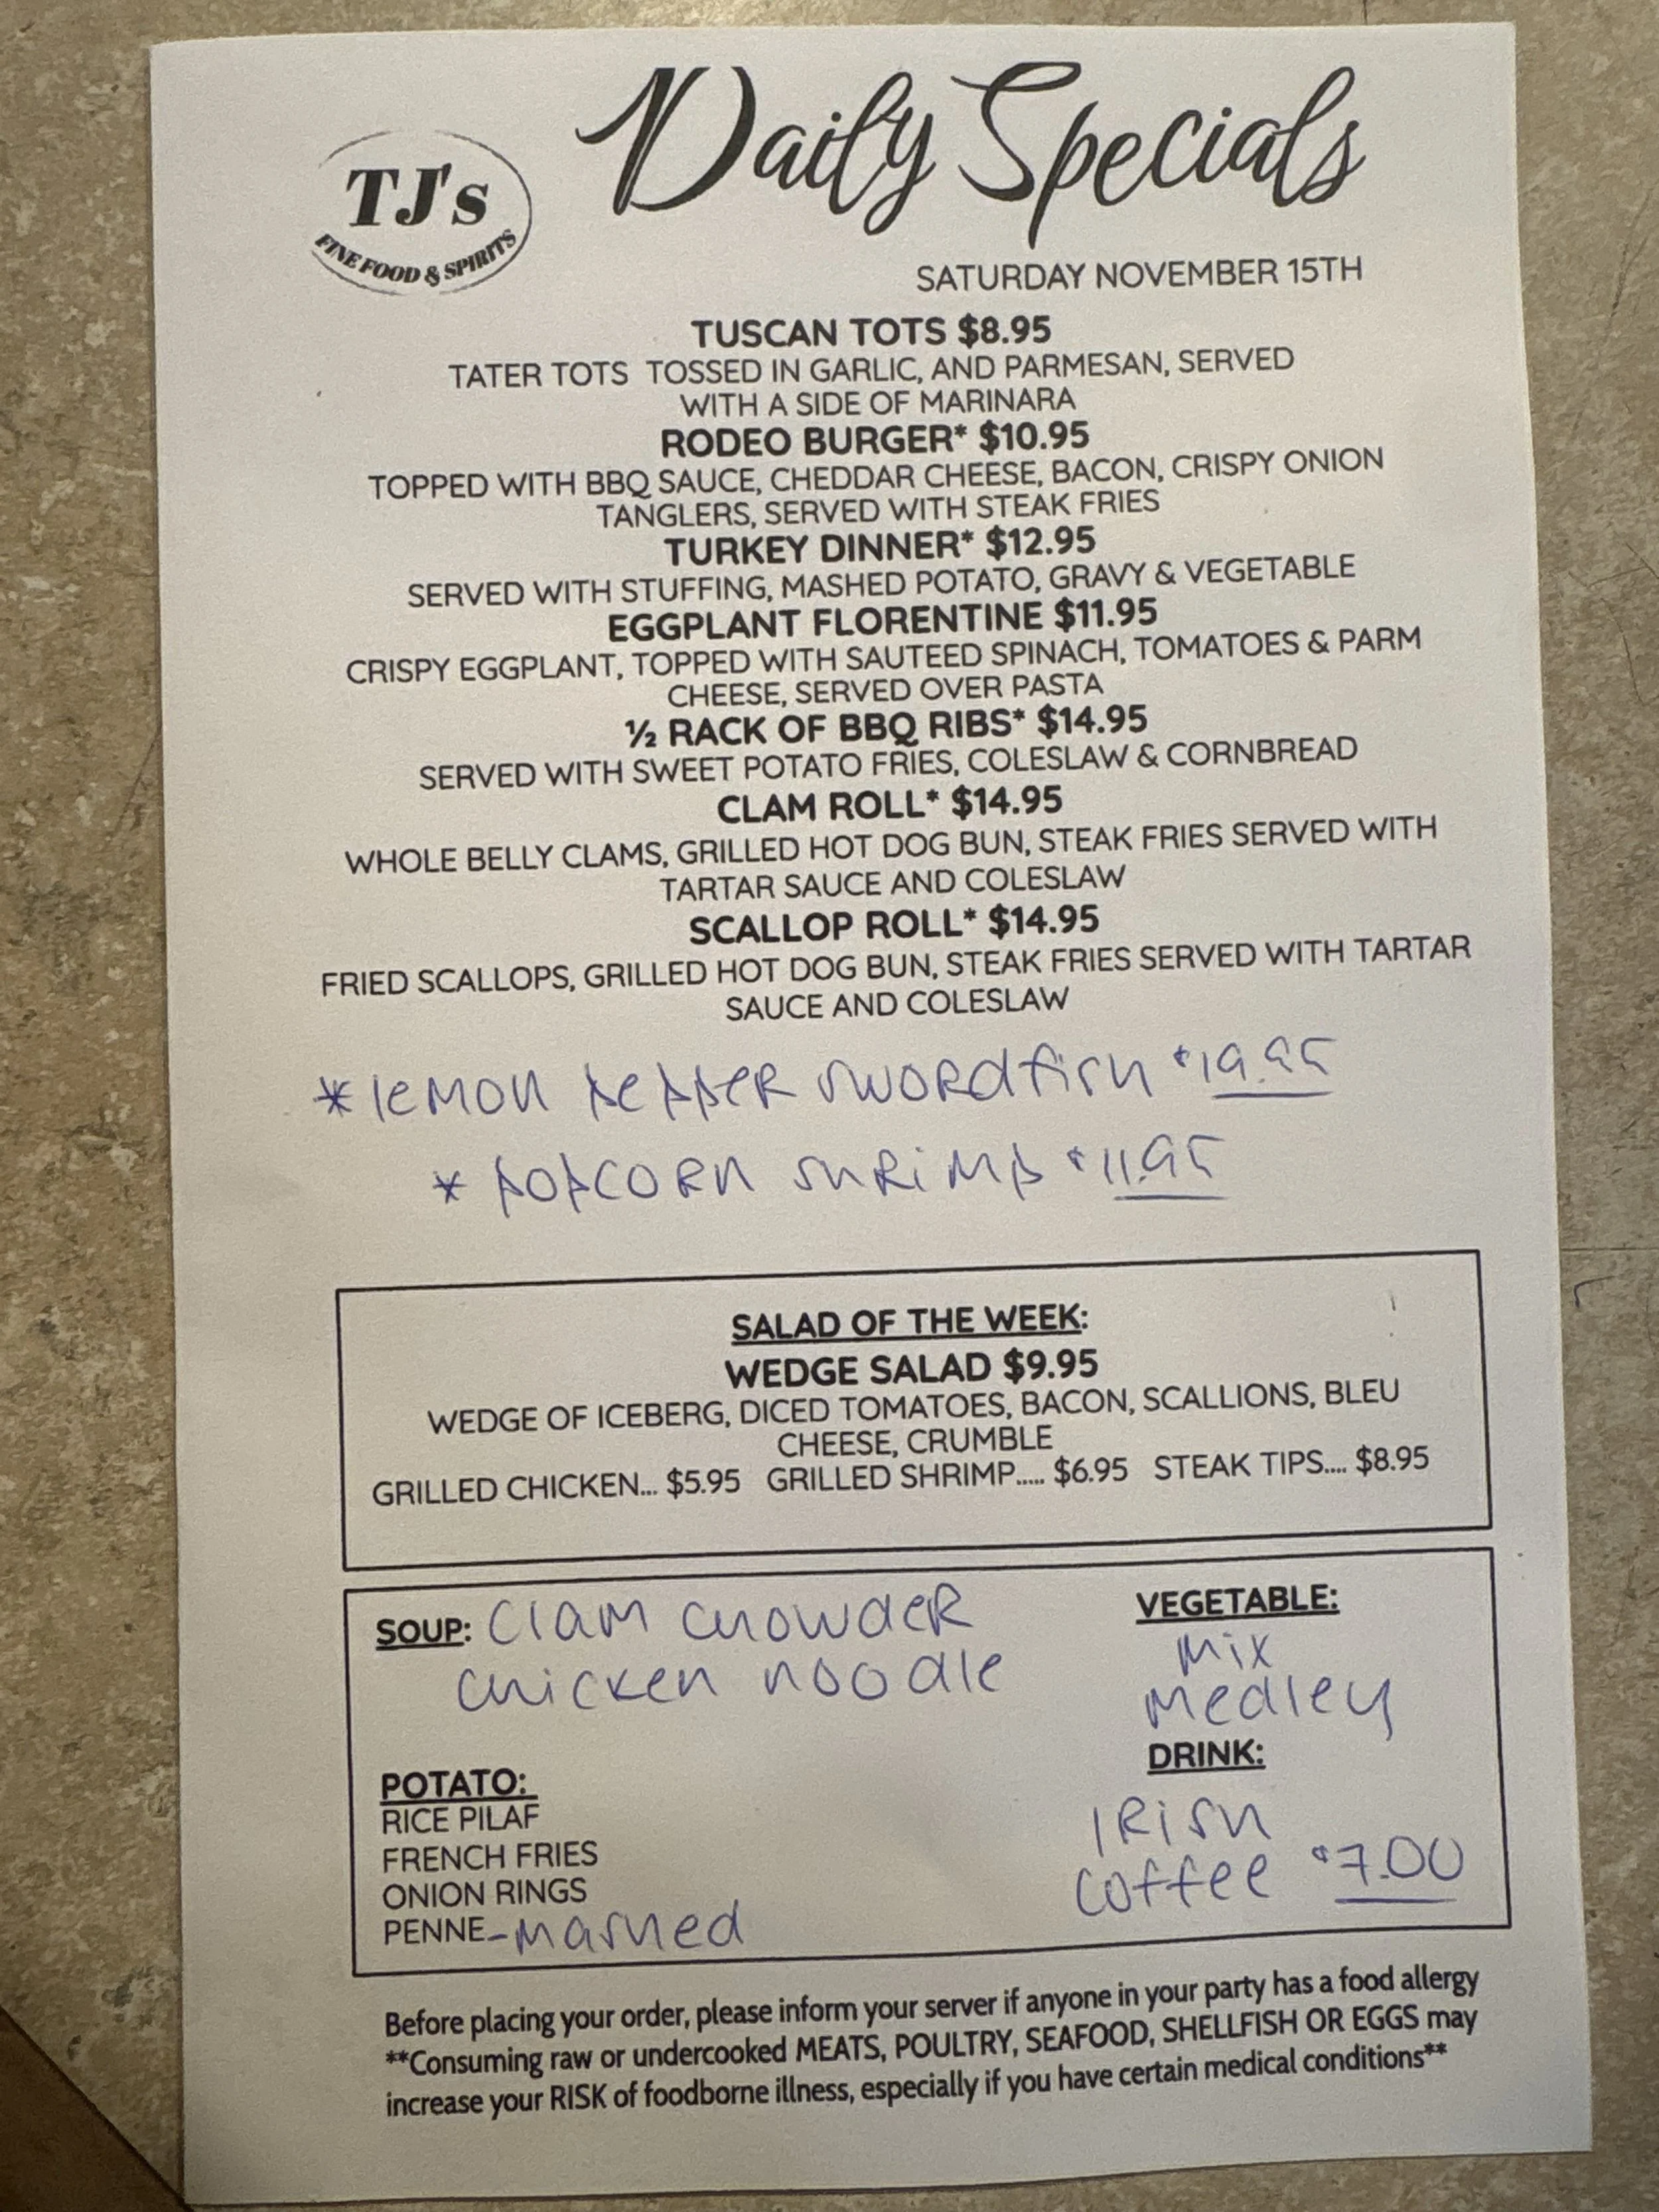 TJ's
FINE FOOD & SPIRITS
Daily Specials
SATURDAY NOVEMBER 15TH
TUSCAN TOTS $8.95
TATER TOTS TOSSED IN GARLIC, AND PARMESAN, SERVED
WITH A SIDE OF MARINARA
RODEO BURGER* $10.95
TOPPED WITH BBQ SAUCE, CHEDDAR CHEESE, BACON, CRISPY ONION
TANGLERS, SERVED WITH STEAK FRIES
TURKEY DINNER* $12.95
SERVED WITH STUFFING, MASHED POTATO, GRAVY & VEGETABLE
EGGPLANT FLORENTINE $11.95
CRISPY EGGPLANT, TOPPED WITH SAUTEED SPINACH, TOMATOES & PARM
CHEESE, SERVED OVER PASTA
½ RACK OF BBQ RIBS* $14.95
SERVED WITH SWEET POTATO FRIES, COLESLAW & CORNBREAD
CLAM ROLL* $14.95
WHOLE BELLY CLAMS, GRILLED HOT DOG BUN, STEAK FRIES SERVED WITH
TARTAR SAUCE AND COLESLAW
SCALLOP ROLL* $14.95
FRIED SCALLOPS, GRILLED HOT DOG BUN, STEAK FRIES SERVED WITH TARTAR
SAUCE AND COLESLAW
* lemon pepper swordfish $19.95
* popcorn shrimp $11.95
SALAD OF THE WEEK:
WEDGE SALAD $9.95
WEDGE OF ICEBERG, DICED TOMATOES, BACON, SCALLIONS, BLEU
CHEESE, CRUMBLE
GRILLED CHICKEN... $5.95 GRILLED SHRIMP..... $6.95 STEAK TIPS.... $8.95
SOUP: Clam chowder
chicken noodle
VEGETABLE:
mix
medley
POTATO:
RICE PILAF
FRENCH FRIES
ONION RINGS
PENNE - mashed
DRINK:
Irish
coffee $7.00
Before placing your order, please inform your server if anyone in your party has a food allergy
**Consuming raw or undercooked MEATS, POULTRY, SEAFOOD, SHELLFISH OR EGGS may
increase your RISK of foodborne illness, especially if you have certain medical conditions**